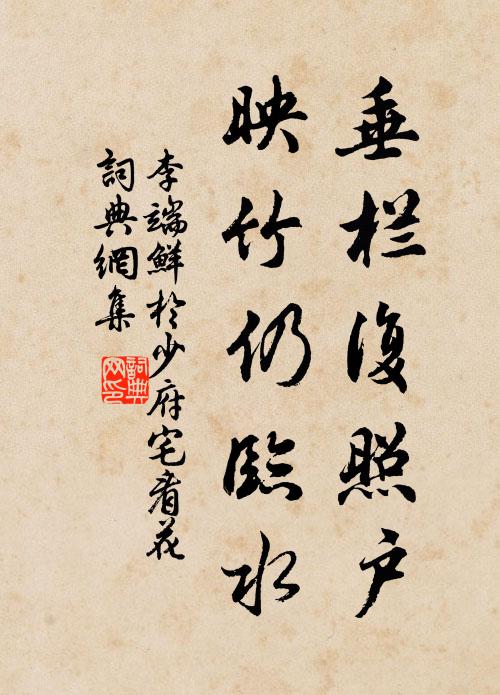 垂栏復照户
映竹仍臨水
李端鮮於少府宅看花
詞典網集
詞典網印